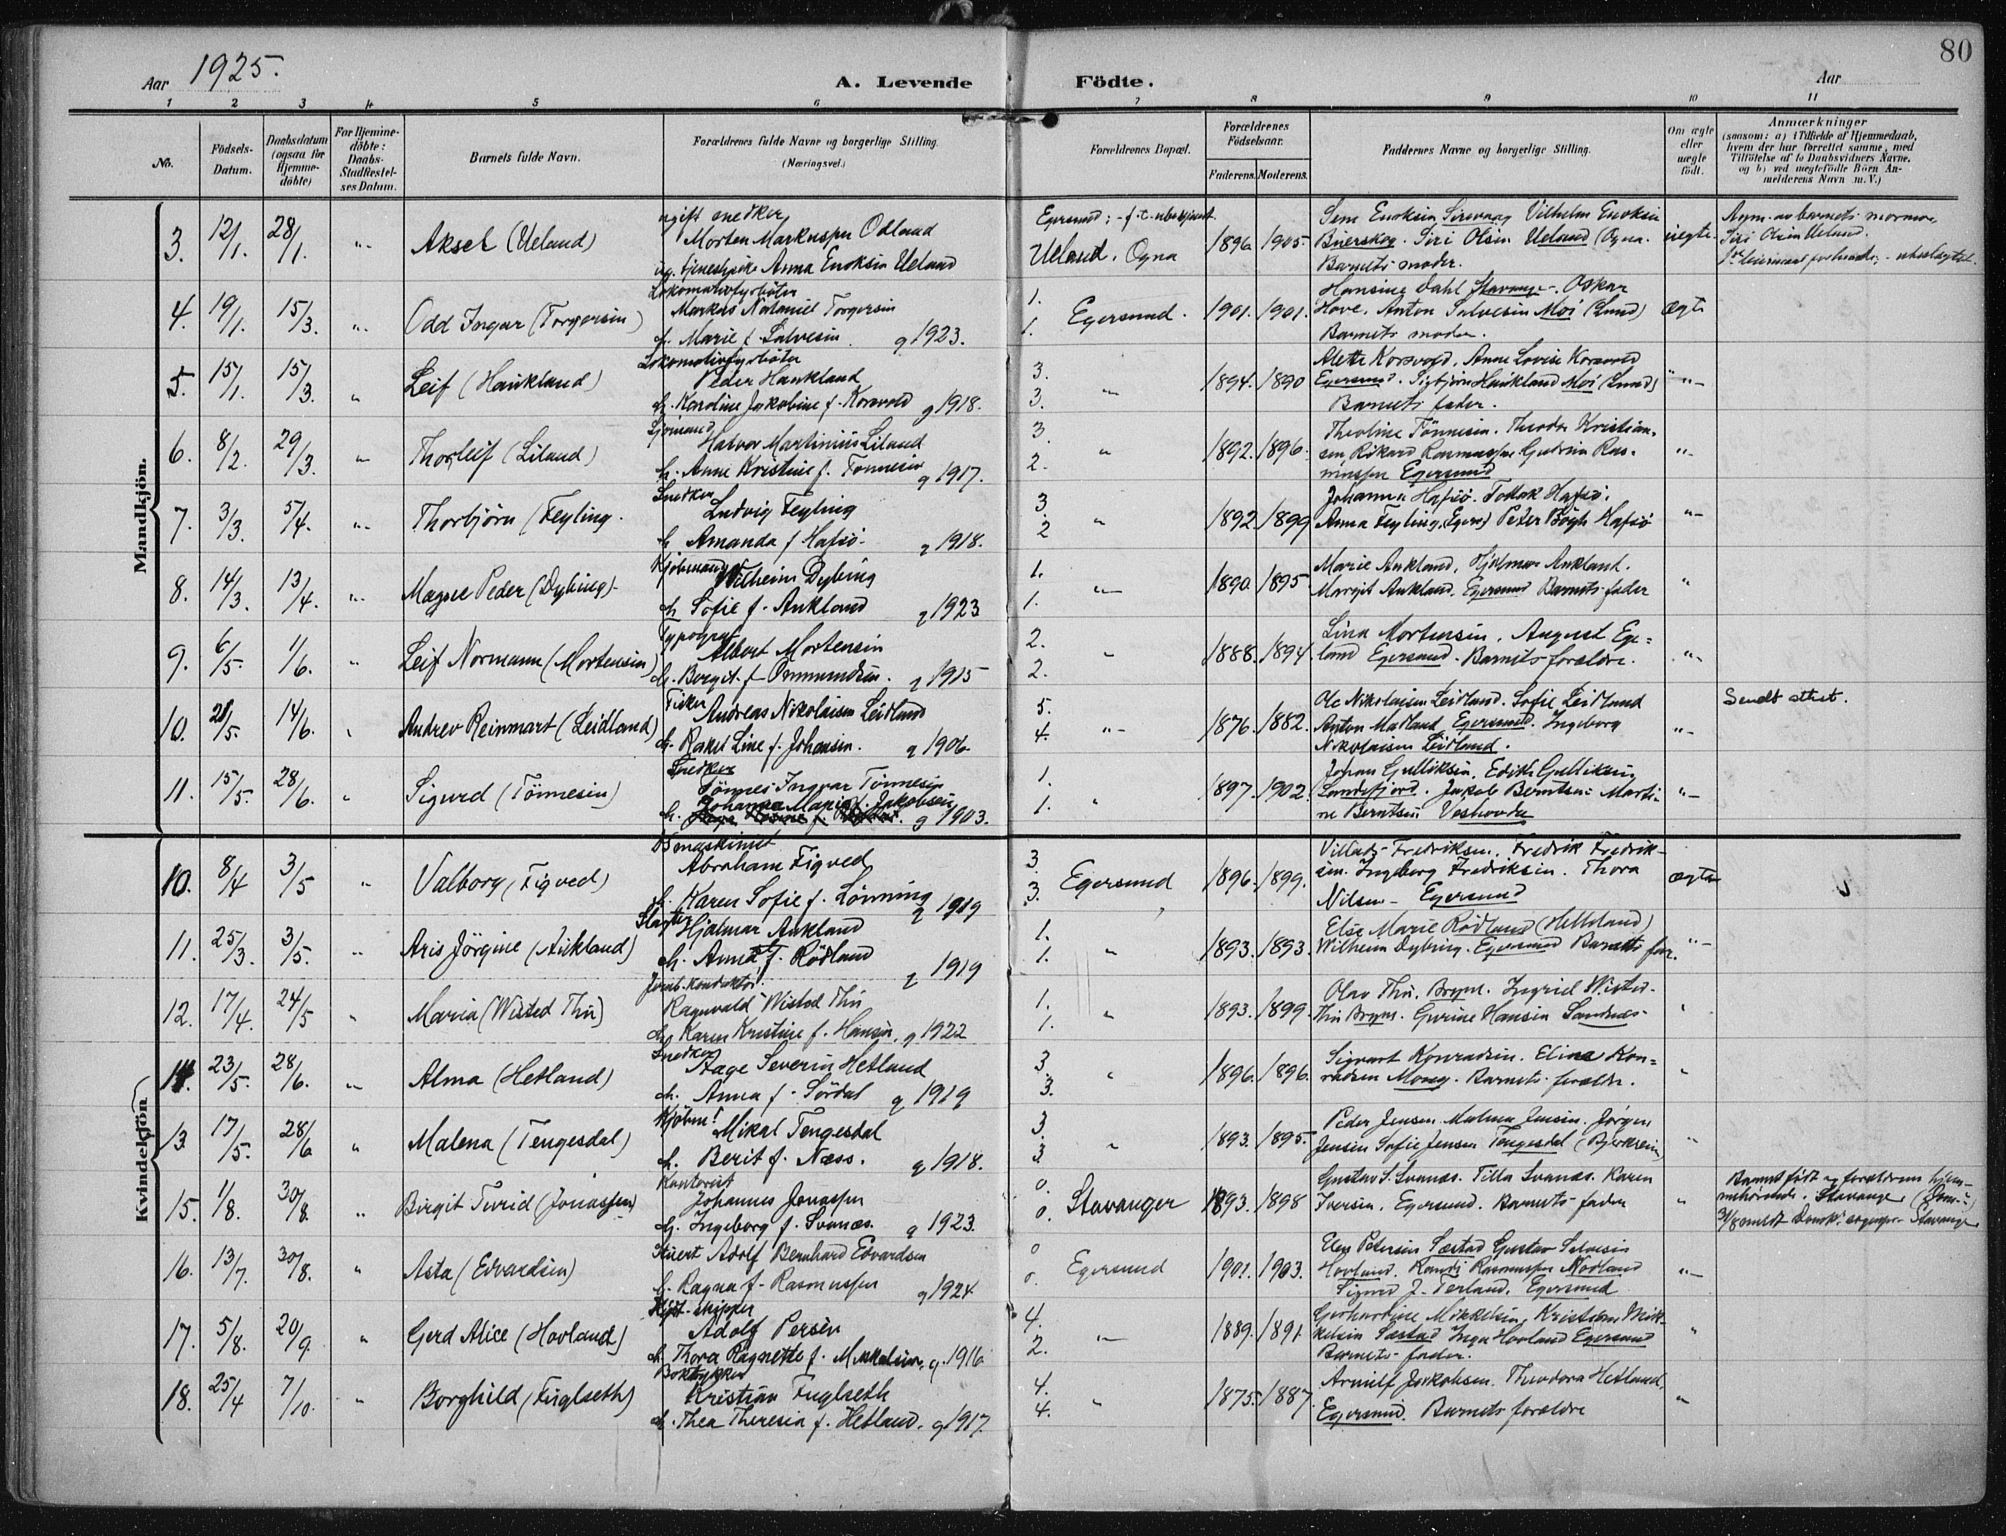 80
Aar 1925.
A. Levende Födte.
Aar
1 2 3 4 5 6 7 8 9 10 11
No.
Födsels-Datum.
Daabsdatum (ogsaa for Hjemmedöbte)
For Hjemmedöbte: Daabs-Stadfestelses Datum.
Barnets fulde Navn.
Forældrenes fulde Navne og borgerlige Stilling. (Næringsvei.)
Forældrenes Bopæl.
Forældrenes Födselsaar.
Faderens. Moderens.
Faddernes Navne og borgerlige Stilling.
Om ægte eller uægte födt.
Anmærkninger
(saasom: a) i Tilfælde af Hjemmedaab, hvem der har forrettet samme, med Tilföielse af to Daabsvidners Navne, og b) ved uægtefödte Börn Anmelderens Navn m. V.)
Mandkjön.
3. 12/1. 28/1. Aksel (Ueland)
ugift snedker Morten Markussen Odland
ug. tjenestepike Anna Enoksen Ueland
Ueland. Ogna 1896. 1905.
Siri Olsen Ueland (Ogna.
Barnets moder.
uegte
Siri Olsen Ueland.
4. 19/1. 15/3. Odd Ingvar (Torgersen)
Lokomotivfyrböter
Markus Nataniel Torgersen
h. Marie f. Salvesen g 1923.
1. 1. Egersund. 1901. 1901.
Hansine Dahl Stavanger. Oskar
Hove. Anton Salvesen Moi (Lund)
Barnets moder.
ægte
5. 15/1. 15/3. Leif (Haukland)
Lokomotivfyrböter
Peder Haukland
h. Karoline Jakobine f. Korsvold g 1918.
3. 3. " 1894. 1890
Alette Korsvold, Anne Lovise Korsvold
Egersund. Sigbjörn Haukland Moi (Lund)
Barnets fader.
6. 8/2. 29/3. Thorleif (Liland)
Sjömand
Halvor Martinius Liland
h. Anne Kristine f. Tönnesen g 1917.
3. 2. " 1892. 1896.
Theoline Tönnesen. Theodor Kristiansen Rikard Rasmussen Gudrun Rasmussen Egersund
7. 3/3. 5/4. Thorbjörn (Feyling.
Snedker
Ludvig Feyling
h Amanda f Hafsö. g 1918.
3. 2 " 1892 1899
Johanna Hafsö. Tollak Hafsö.
Anna Feyling, Egersd Peter Bögh Hafsö
8. 14/3. 13/4. Magne Peder (Dybing).
Kjöbmand
Wilhelm Dybing
h. Sofie f. Aukland g 1923
1. 1. " 1890. 1895
Marie Aukland, Hjalmar Aukland.
Margit Aukland, Egersund Barnets fader
9. 6/5. 1/6. Leif Normann (Mortensen)
Typograf
Albert Mortensen
h. Borgit f Ommundsen. g 1915
2. 2. " 1888. 1894
Lina Mortensen. August Egeland Egersund. Barnets forældre.
10. 21/5. 14/6. Andrev Reinmart (Leidland)
Fisker
Andreas Nikolaisen Leidland
h. Rakel Line f. Johansen. g 1906
5. 4. " 1876. 1882.
Ole Nikolaisen Leidland. Sofie Leidland
Anton Madland Egersund. Ingeborg
Nikolaisen Leidland.
Sendt attest.
11. 15/5. 28/6. Sigurd (Tönnesen)
Snedker
Tönnes Ingvar Tönnesen
h. Johanna Marie f. Jakobsen g 1903.
1. 1. " 1897. 1902.
Johan Gulliksen, Edith Gulliksen
Sandefjord. Jakob Berntsen Martine Berntsen Veshovde
Kvindekjön
10. 8/4 3/5 Valborg (Figved)
Abraham Figved
h. Karen Sofie f. Lönning g 1919
3. 3. Egersund 1896. 1899.
Fredriksen. Fredrik Fredriksen. Ingeborg Fredriksen. Thora
Nilsen Egersund
ægte
11. 25/3. 3/5. Aris Jörgine (Aukland)
Slagter
Hjalmar Aukland
h. Anna f. Rödland g 1919
1. 1. " 1893. 1893.
Else Marie Rödland (Helleland)
Wilhelm Dybing. Egersund Barnets far.
12. 17/4. 24/5 Maria (Wisted Thu)
Jernb. konduktör
Ragnvald Wisted Thu
h. Karen Kristine f. Hansen, g 1922
1. 1. " 1893. 1899.
Olav Thu. Bryne. Ingrid Wisted
Thu Bryne. Gurine Hansen Sandnes
14. 23/5. 28/6. Alma (Hetland)
Snedker
Aage Severin Hetland
h. Anna f. Sördal g 1919
3. 3. " 1896. 1896.
Sigvart Konradsen. Elina Konradsen Mong. Barnets forældre.
13. 17/5. 28/6 Malena (Tengesdal)
Kjöbm!
Mikal Tengesdal
h. Berit f. Næss. g 1918.
3. 3. " 1893. 1895.
Peder Jensen Malena Jensen. Jörgen
Jensen Sofie Jensen Tengesdal (Bjerkreim)
15. 1/8. 30/8. Birgit Turid (Jonassen)
Kontorist
Johannes Jonassen
h. Ingeborg f. Svanæs. g 1923.
0. 0. Stavanger 1893. 1898
Gustav S. Svanæs. Tilla Svanæs. Karen
Iversen. Egersund. Barnets fader
16. 13/7. 30/8. Asta (Edvardsen)
Adolf Bernhard Edvardsen
h. Ragna f. Rasmussen g 1924
0 0. Egersund 1901. 1903.
Elen Petersen Sæstad Gustav Salvesen
Hovland. Randi Rasmussen Nodland
Sigurd J. Terland. Egersund
17. 5/8. 20/9. Gerd Alice (Hovland)
skipper
Adolf Persèn
h. Thora Ragnette f. Mikkelsen, g. 1916
4. 2. " 1889. 1891
Gerhardine Mikkelsen, Kristian Mikkelsen Sæstad Inga Hovland Egersund
Barnets fader.
18. 25/4 7/10. Borghild (Fuglseth)
Boktrykker
Kristian Fuglseth
h. Thea Theresia f. Hetland. g 1917.
4. 4. " 1875. 1887.
Arnulf Jakobsen. Theodora Hetland.
Egersund. Barnets forældre